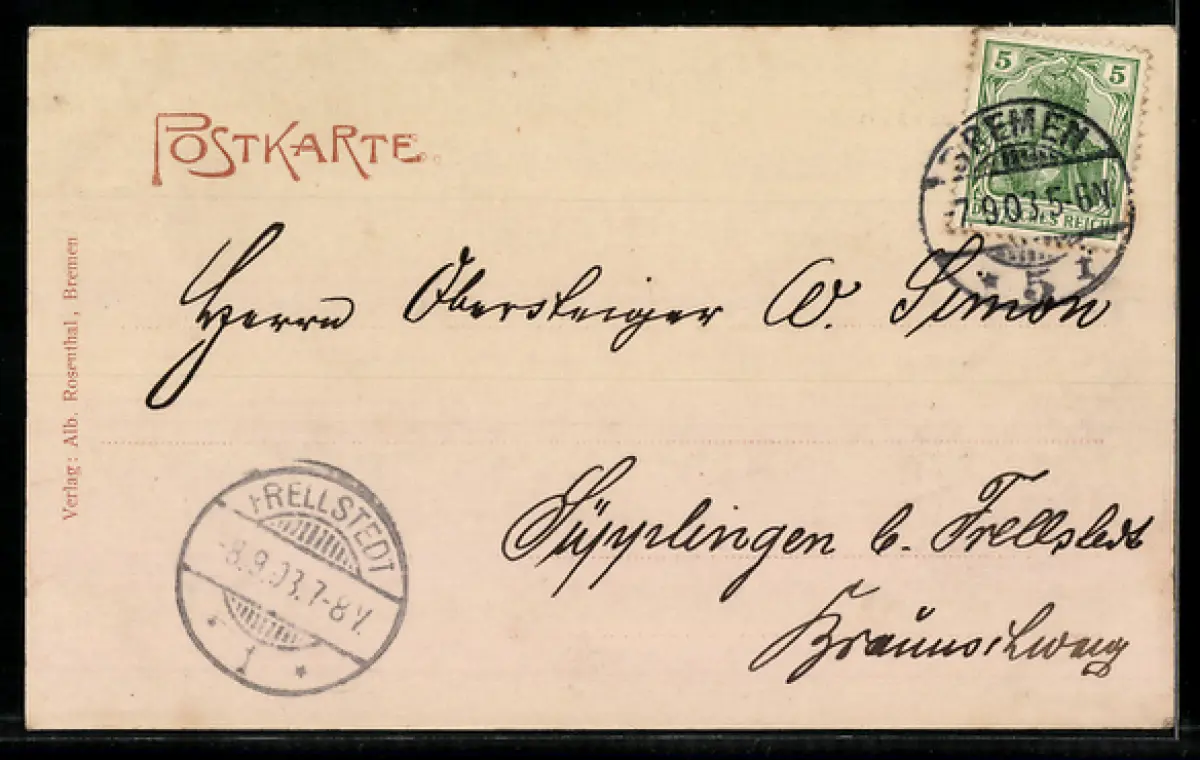 POSTKARTE
5 5
BREMEN
7.9.03.5-6N.
* 5 i
DEUTSCHES REICH
Herrn Obersteiger W. Simon
Süpplingen b. Frellstedt
Braunschweig
Verlag: Alb. Rosenthal, Bremen
FRELLSTEDT
-8.9.03.7-8V.
* 1 *